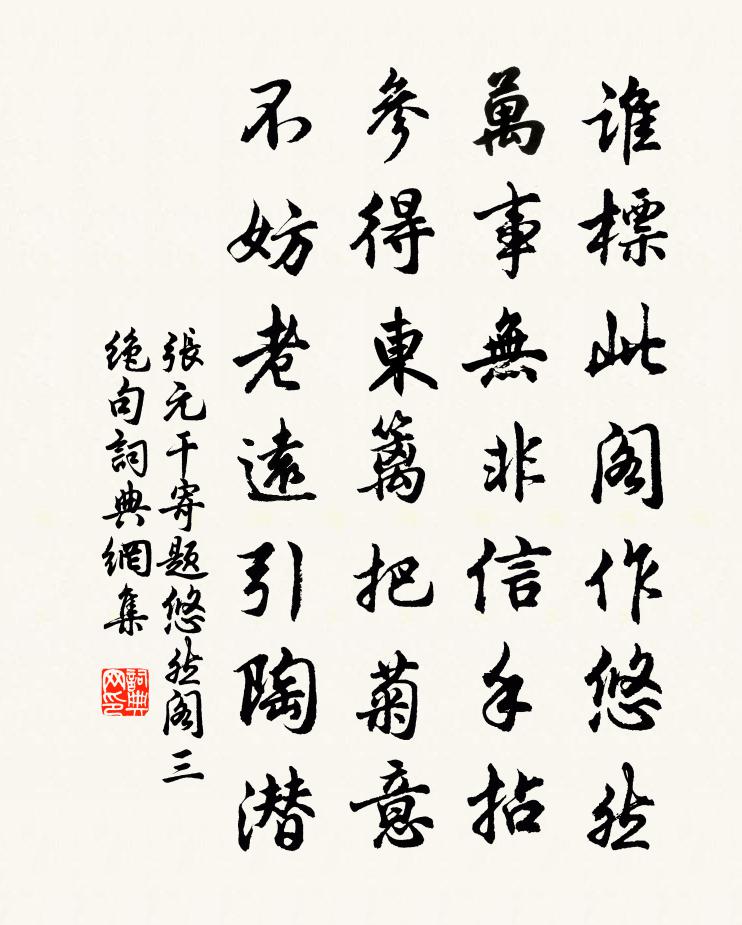 誰標此閣作悠然
萬事無非信手拈
參得東籬把菊意
不妨老遠引陶潜
張元干寄题悠然阁三
绝句詞典網集
詞典
网印